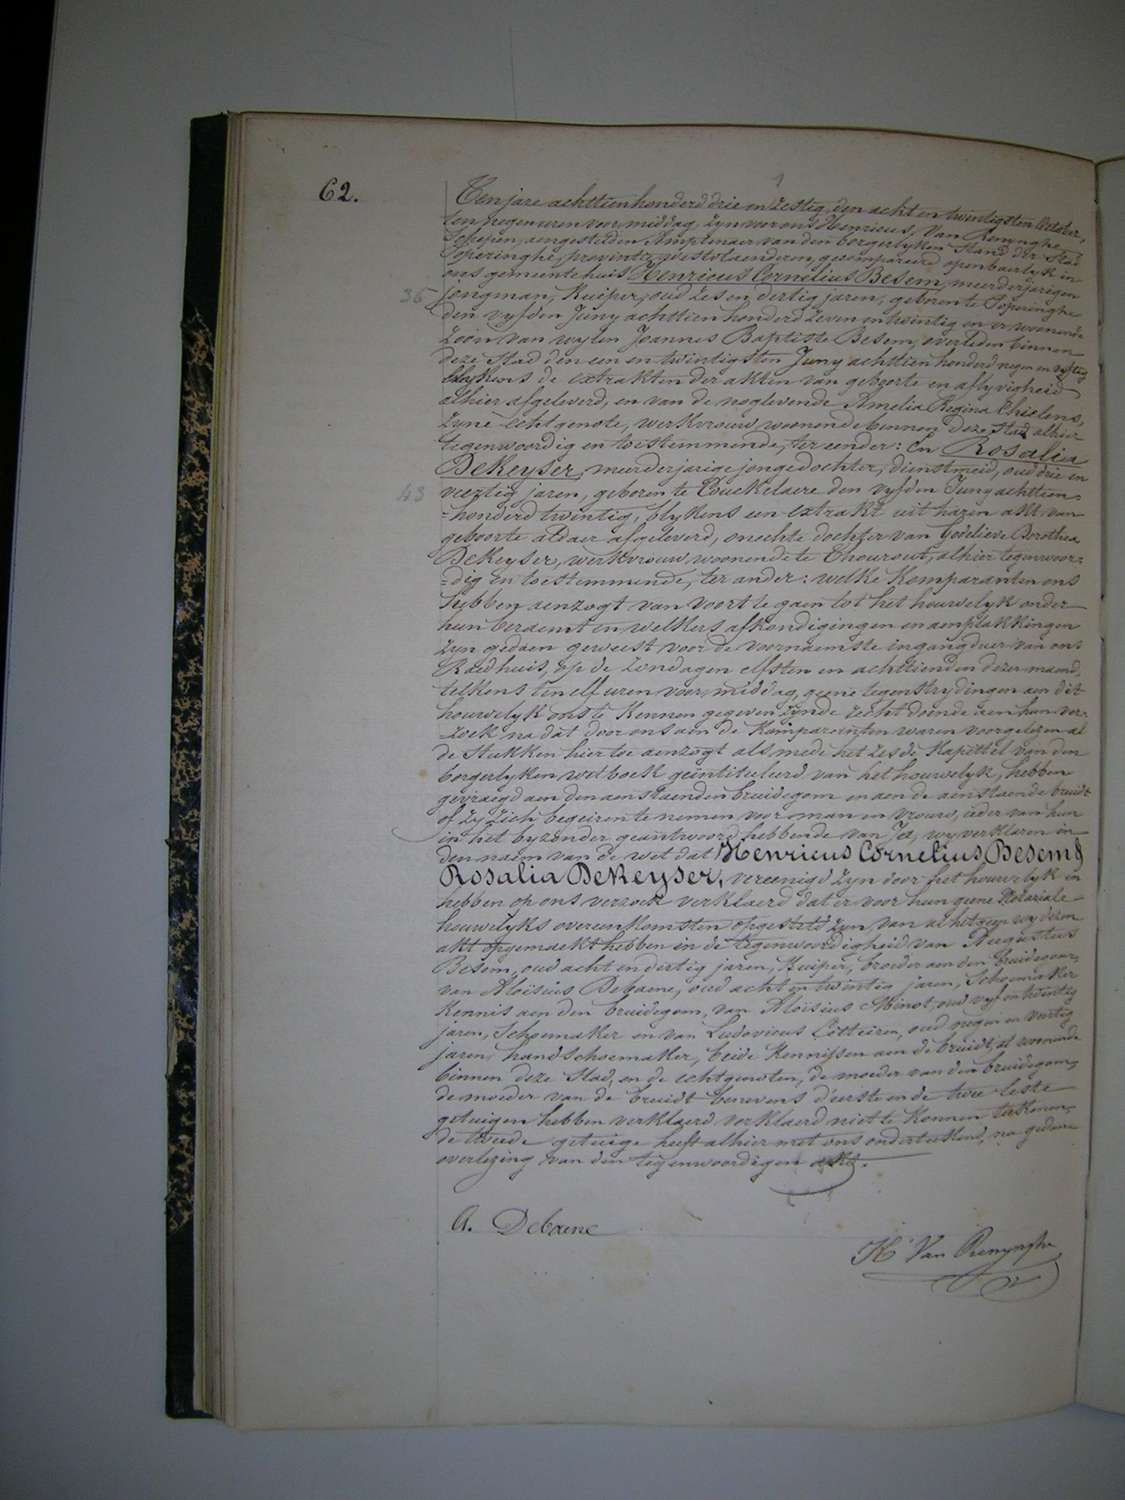 62.
Ten jare achttienhonderd drie en zestig, den acht en twintigsten October,
ten negen uren voor middag, zyn voor ons Henricus, Van Renynghe,
Schepen, aengestelden Amptenaer van den borgerlyken Stand der Stad
Poperinghe, provintie westvlaenderen, gecompareerd openbaerlyk in
ons gemeentehuis Henricus Cornelius Besem, meerderjarigen
36 jongman, Kuiper, oud zes en dertig jaren, geboren te Poperinghe
den vyfden Juny achttien honderd zeven en twintig en er woonende
zoon van wylen Joannes Baptiste Besem, overleden binnen
deze Stad den een en twintigsten Juny achttien honderd negen en vyftig
blykens de extrakten der akten van geboorte en aflyvigheid
alhier afgeleverd, en van de noglevende Amelia Regina Chielens,
zyne echtgenote, werkvrouw, woonende binnen deze Stad alhier
tegenwoordig en toestemmende, ter eender: En Rosalia
DeKeyser, meerderjarige jongedochter, dienstmeid, oud drie en
43 veertig jaren, geboren te Couckelaere den vyfden Juny achttien
=honderd twintig, blykens een extrakt uit haren akt van
geboorte aldaer afgeleverd, onechte dochter van Godelieve Dorothea
DeKeyser, werkvrouw, woonende te Thourout, alhier tegenwoor=
=dig en toestemmende, ter ander: welke Komparanten ons
hebben aenzogt van voort te gaen tot het houwelyk onder
hun beraemt en welkers afkondigingen en aenplakkingen
zyn gedaen geweest voor de voornaemste ingangdeur van ons
Raedhuis, op de zondagen elfsten en achttienden dezer maend,
telkens ten elf uren voor middag, geene tegenstrydingen aen dit
houwelyk ons te Kennen gegeven zynde recht doende aen hun ver=
=zoek na dat door ons aen de Komparanten waren voorgelezen al
de Stukken hier toe aenzogt als mede het zesde Kapittel van den
borgerlyken wetboek geïntituleerd van het houwelyk, hebben
gevraegd aen den aenstaenden bruidegom en aen de aenstaende bruidt
of zy zich begeiren te nemen voor man en vrouw, ieder van hun
in het byzonder geantwoord hebbende van Ja, wy verklaren in
den naem van de wet dat Henricus Cornelius Besem &
Rosalia DeKeyser, vereenigd zyn door het houwelyk en
hebben op ons verzoek verklaerd dat er voor hun geene Notariale
houwelyks overeenkomsten opgesteld zyn van al hetgeen wy dezen
akt opgemaekt hebben in de tegenwoordigheid van Augustus
Besem, oud acht en dertig jaren, Kuiper, broeder aen den bruidegom,
van Aloisius Debaene, oud acht en twintig jaren, Schoemaker
Kennis aen den bruidegom, van Aloïsius Minot, oud vyf en twintig
jaren, Schoemaker en van Ludovicus, oud negen en veertig
jaren, handschoemaker, beide Kennissen aen de bruidt, al woonende
binnen deze Stad, en de echtgenoten, de moeder van den bruidegom,
de moeder van de bruidt benevens d'eerste en de twee leste
getuigen hebben verklaerd verklaerd niet te Konnen teekenen,
de tweede getuige heeft alhier met ons onderteekend, na gedane
overlezing van den tegenwoordigen akt.
A. Debaene
H Van Renynghe